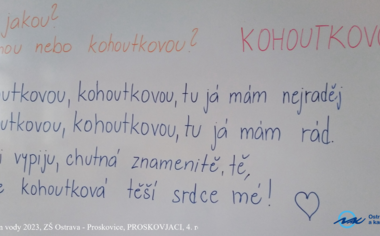 jakou?
nebo kohoutkovou?
KOHOUTKOVO
kohoutkovou, tu já mám nejraděj
kohoutkovou, tu já mám rád.
vypiju, chutná znamenitě, tě,
kohoutková těší srdce mé!
vody 2023, ZŠ Ostrava - Proskovice, PROSKOVJACI, 4.